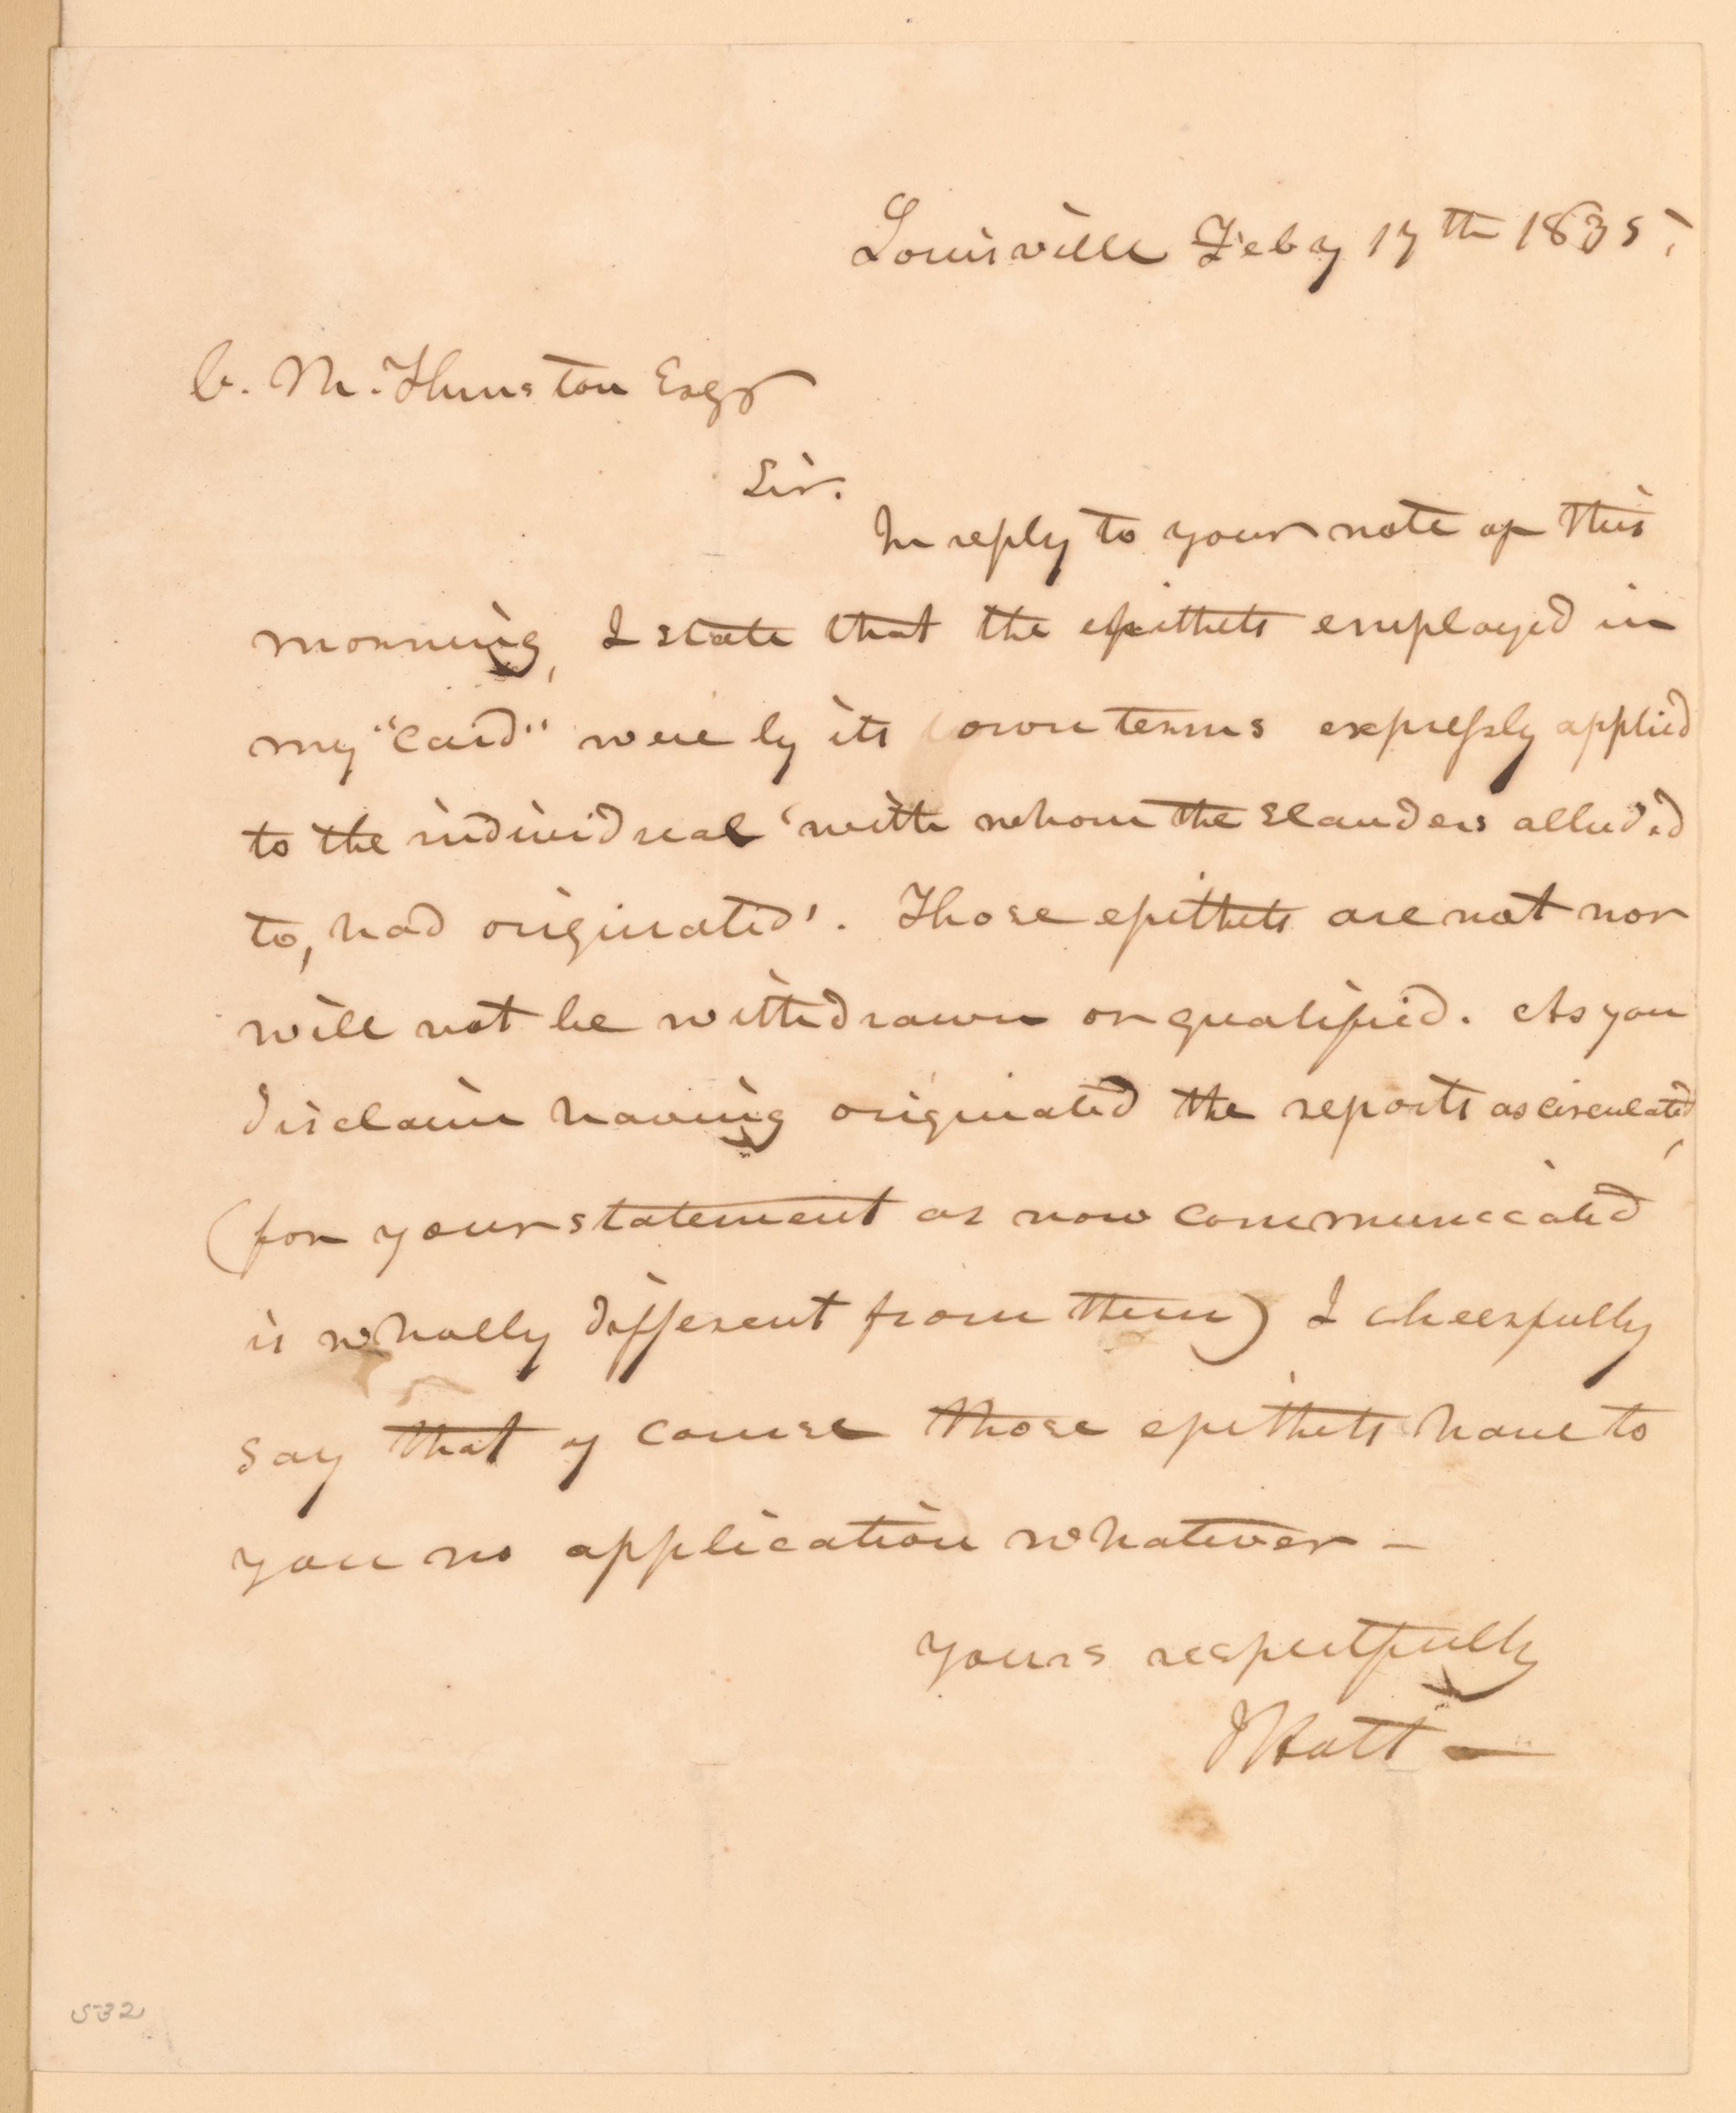 Louisville Feby 17th 1835,
C. M. Thurston Esqr
Sir.
In reply to your note of this
morning, I state that the epithets employed in
my "Card" were by its own terms expressly applied
to the individual 'with whom the slanders alluded
to, had originated'. Those epithets are not nor
will not be withdrawn or qualified. As you
disclaim having originated the reports as circulated,
(for your statement as now communicated
is wholly different from them) I cheerfully
say that of course those epithets have to
you no application whatever –
yours respectfully
J Holt —
532